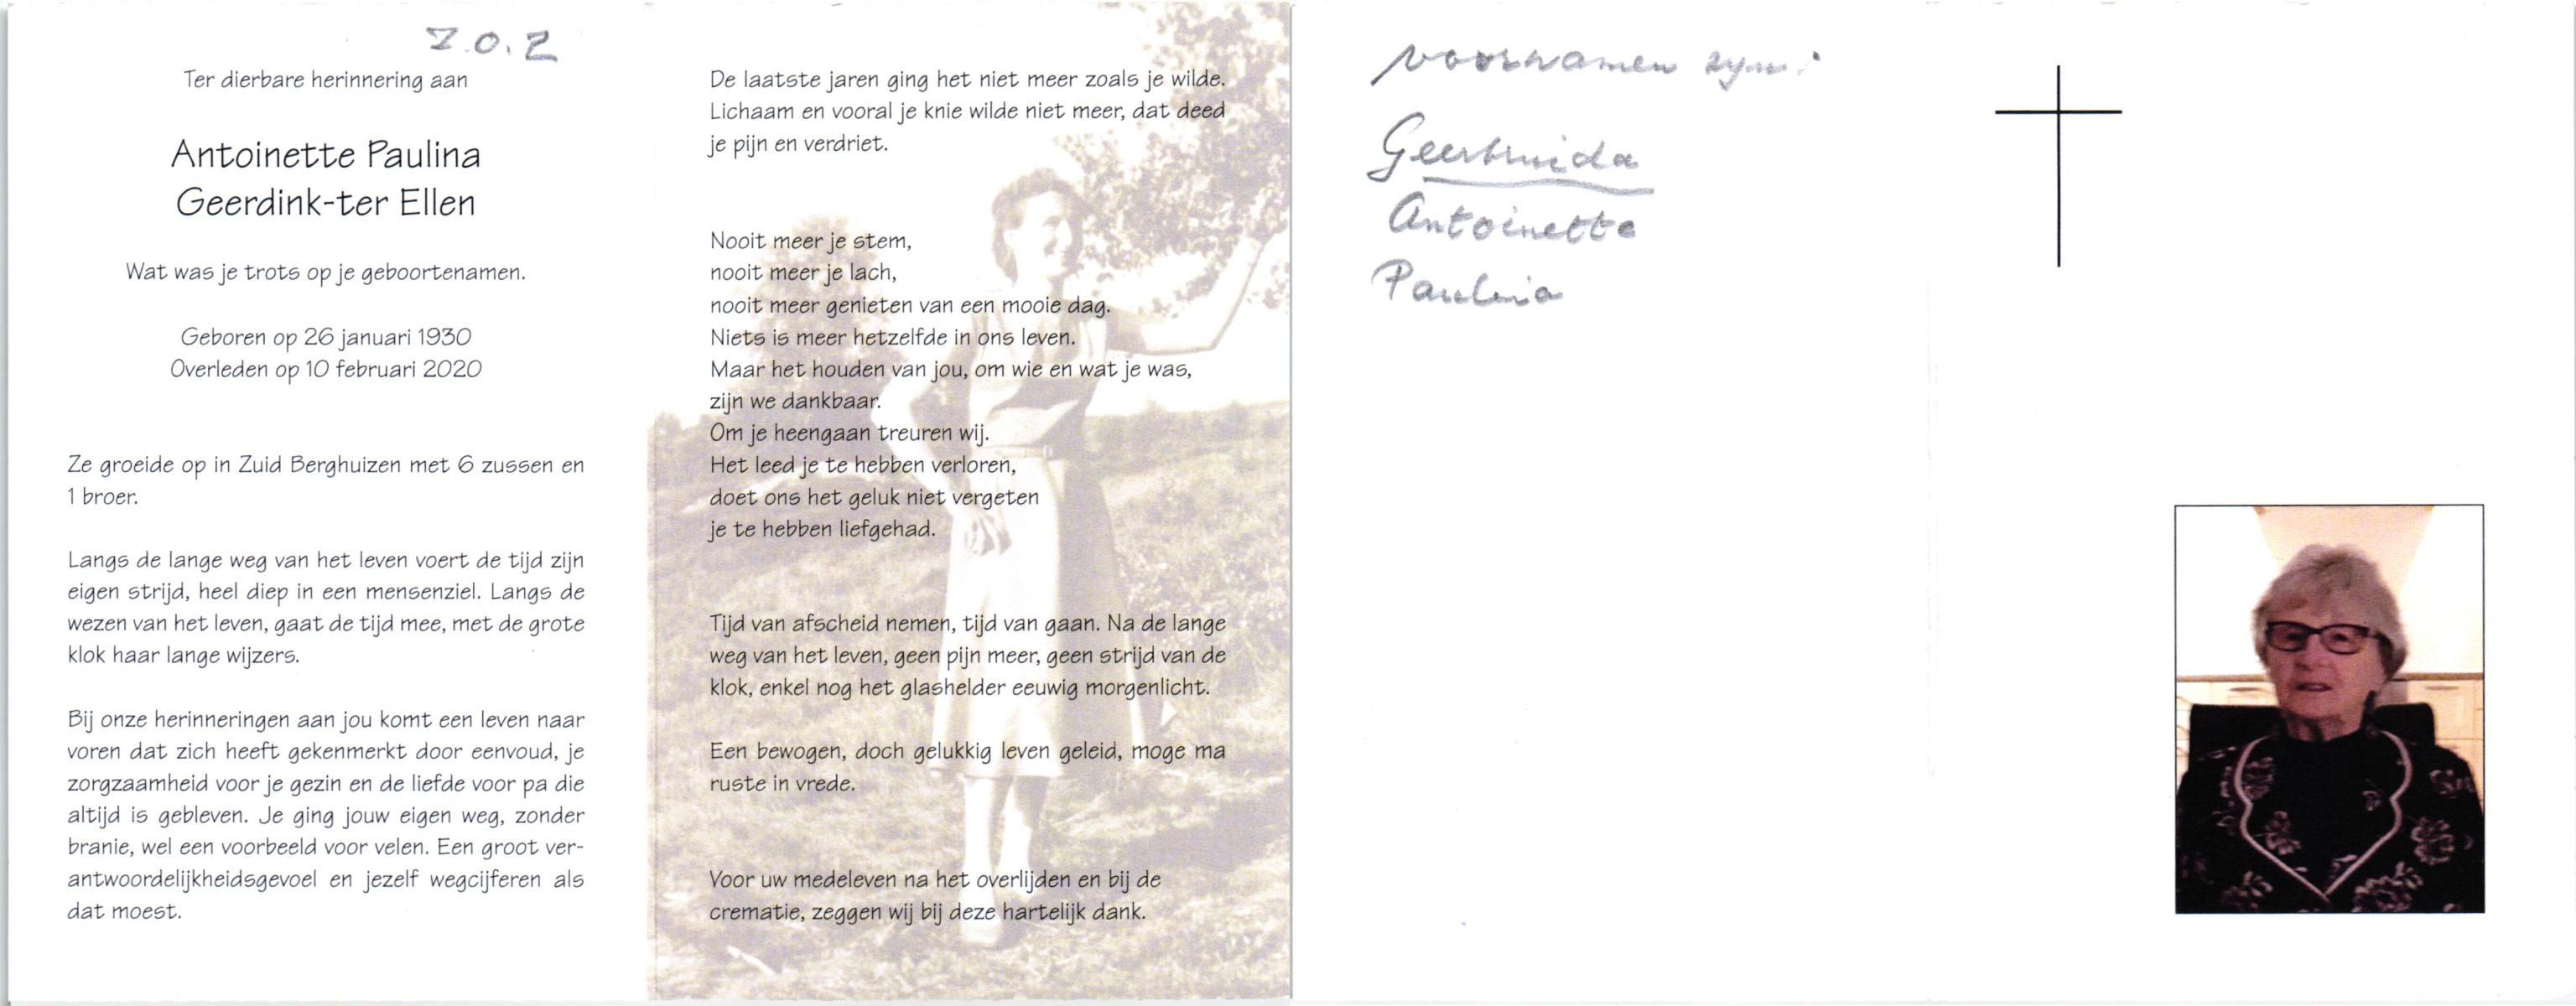 Z.O.Z
Ter dierbare herinnering aan
Antoinette Paulina
Geerdink-ter Ellen
Wat was je trots op je geboortenamen.
Geboren op 26 januari 1930
Overleden op 10 februari 2020
Ze groeide op in Zuid Berghuizen met 6 zussen en
1 broer.
Langs de lange weg van het leven voert de tijd zijn
eigen strijd, heel diep in een mensenziel. Langs de
wezen van het leven, gaat de tijd mee, met de grote
klok haar lange wijzers.
Bij onze herinneringen aan jou komt een leven naar
voren dat zich heeft gekenmerkt door eenvoud, je
zorgzaamheid voor je gezin en de liefde voor pa die
altijd is gebleven. Je ging jouw eigen weg, zonder
branie, wel een voorbeeld voor velen. Een groot ver-
antwoordelijkheidsgevoel en jezelf wegcijferen als
dat moest.
De laatste jaren ging het niet meer zoals je wilde.
Lichaam en vooral je knie wilde niet meer, dat deed
je pijn en verdriet.
Nooit meer je stem,
nooit meer je lach,
nooit meer genieten van een mooie dag.
Niets is meer hetzelfde in ons leven.
Maar het houden van jou, om wie en wat je was,
zijn we dankbaar.
Om je heengaan treuren wij.
Het leed je te hebben verloren,
doet ons het geluk niet vergeten
je te hebben liefgehad.
Tijd van afscheid nemen, tijd van gaan. Na de lange
weg van het leven, geen pijn meer, geen strijd van de
klok, enkel nog het glashelder eeuwig morgenlicht.
Een bewogen, doch gelukkig leven geleid, moge ma
ruste in vrede.
Voor uw medeleven na het overlijden en bij de
crematie, zeggen wij bij deze hartelijk dank.
voornamen zijn:
Geertruida
Antoinette
Paulina